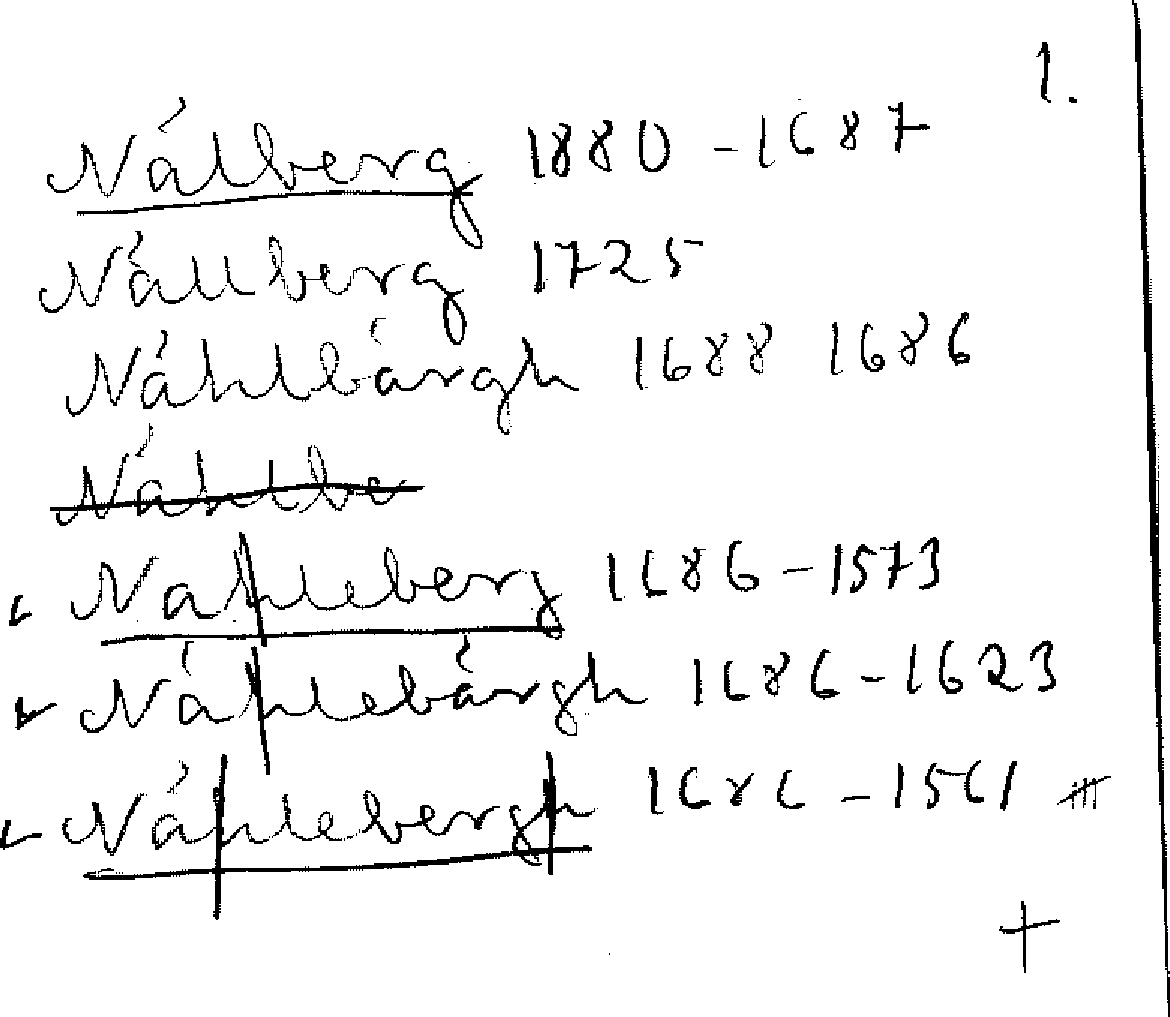 1.
Nálberg 1880 - 1687
Nállberg 1725
Náhlbárgh 1688 1686
Náhlbe
Nahleberg 1686 - 1573
Náhlebárgh 1686 - 1623
Náhlebergh 1686 - 1561
+